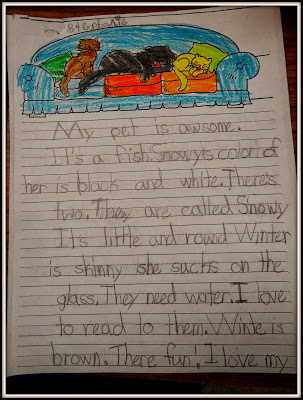 Stephanie
My pet is awsome.
It's a fish. Snowy's color of
her is black and white. There's
two. They are called Snowy
It's little and round Winter
is skinny she sucks on the
glass. They need water. I love
to read to them. Winte is
brown. There fun. I love my